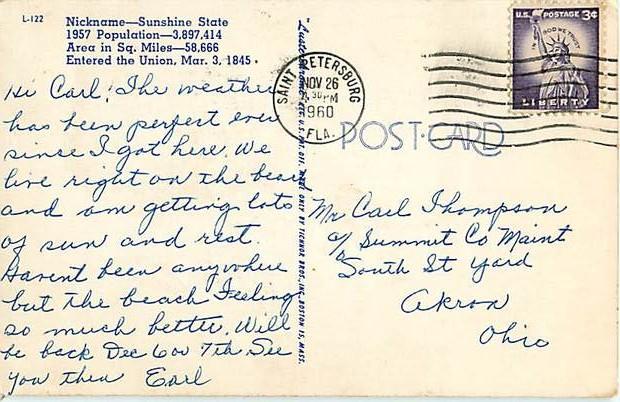 L-122
Nickname—Sunshine State
1957 Population—3,897,414
Area in Sq. Miles—58,666
Entered the Union, Mar. 3, 1845
Hi Carl, The weather
has been perfect ever
since I got here. We
live right on the beach
and am getting lots
of sun and rest.
Havent been anywhere
but the beach Feeling
so much better. Will
be back Dec 6 or 7th See
you then Earl
MADE ONLY BY TICHNOR BROS., INC., BOSTON 15, MASS.
SAINT PETERSBURG
NOV 26
PM
1960
FLA.
POST-CARD
U.S. POSTAGE 3¢
IN GOD WE TRUST
LIBERTY
Mr Carl Thompson
c/o Summit Co Maint
South St Yard
Akron
Ohio